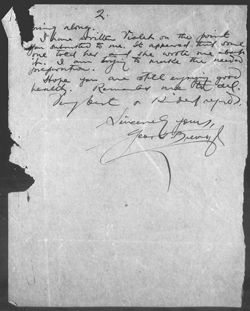 2.
along.
I have written Violet on the point
you submitted to me. It appeared that some
one told her and she wrote me about
it. I am trying to make the needed
preparation.
Hope you are still enjoying good
health. Remember me to all.
Very best & kindest regards,
Sincerely yours,